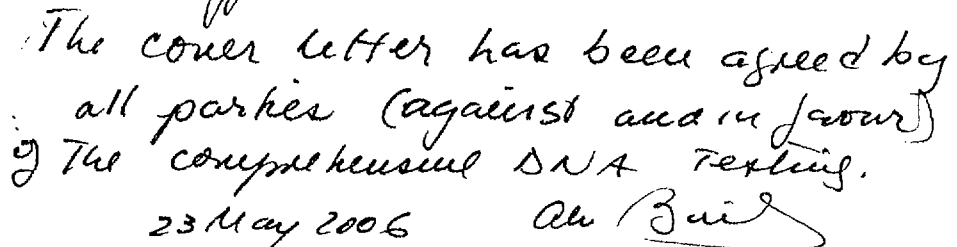 The cover letter has been agreed by
all parties (against and in favour)
of The comprehensive DNA Testing.
23 May 2006